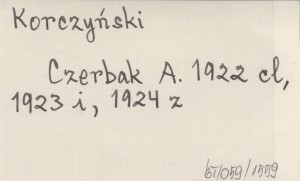 Korczyński
Czerbak A. 1922 cl,
1923 i, 1924 z
/059/1559